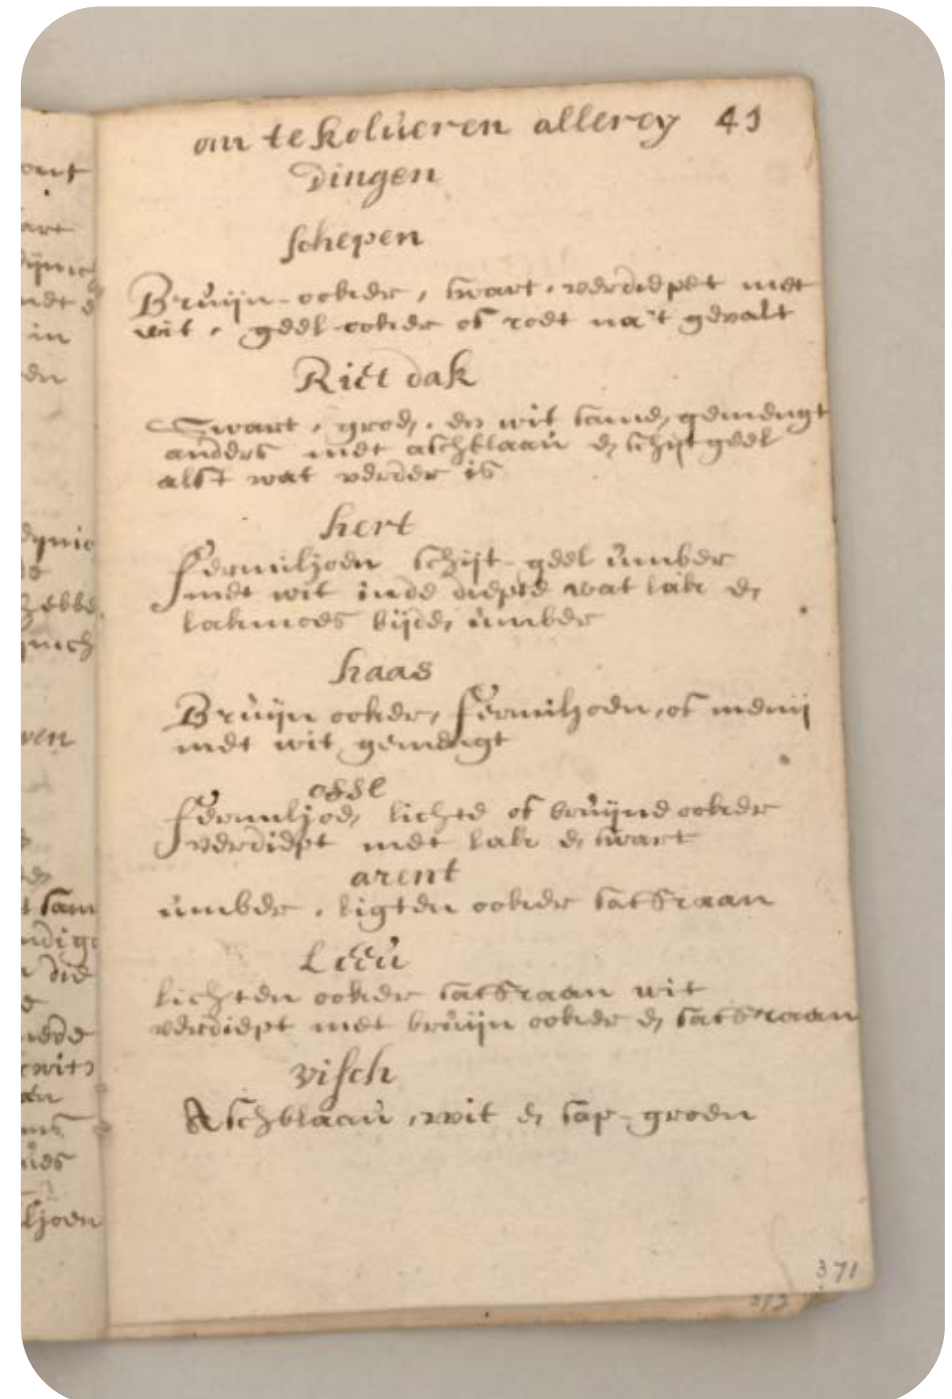 om te kolùeren allerey 41
Dingen
schepen
Brùijn-ooker, swart, verdiepet met
wit, geel-ooker of roet na't gevalt
Riet dak
Swart, groen, en wit samen gemengt
anders met aschblaaù en schijtgeel
alst wat verder is
hert
fermiljoen schijt-geel ùmber
met wit inde diepte wat lak en
lakmoes bijden ùmber
haas
Brùijn ooker, fermiljoen, of menij
met wit gemengt
osse
fermiljoen lichte of brùijne ooker
verdiept met lak en swart
arent
ùmber, ligten ooker saffraan
Leeù
lichten ooker saffraan wit
verdiept met brùijn ooker en saffraan
visch
Aschblaaù, wit en sap-groen
371
ont
art
in
en
ven
sam
die
ljoen